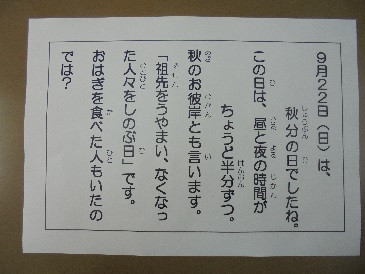 ９月２２日（日）は、
秋分の日でしたね。
この日は、昼と夜の時間が
ちょうど半分ずつ。
秋のお彼岸とも言います。
「祖先をうやまい、なくなっ
た人々をしのぶ日」です。
おはぎを食べた人もいたの
では？